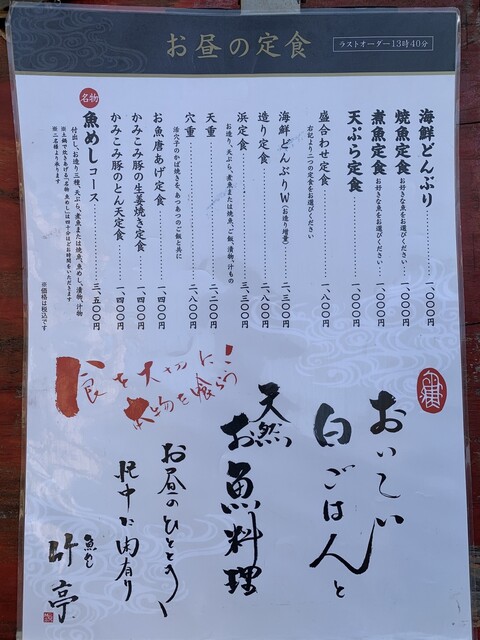 お昼の定食
ラストオーダー13時40分
海鮮どんぶり 一、〇〇〇円
焼魚定食 お好きな魚をお選びください 一、〇〇〇円
煮魚定食 お好きな魚をお選びください 一、〇〇〇円
天ぷら定食 一、〇〇〇円
盛合わせ定食 一、八〇〇円
右記より二つの定食をお選びください
海鮮どんぶりW(お造り増量) 二、三〇〇円
造り定食 二、八〇〇円
浜定食 三、三〇〇円
お造り、天ぷら、煮魚または焼魚、ご飯、漬物、汁もの
天重 二、二〇〇円
穴重 二、八〇〇円
活穴子のかば焼きを、あつあつのご飯と共に
お魚唐あげ定食 一、四〇〇円
かみこみ豚の生姜焼き定食 一、四〇〇円
かみこみ豚のとん天定食 一、四〇〇円
名物
魚めしコース 三、五〇〇円
付出し、お造り三種、天ぷら、煮魚または焼魚、魚めし、漬物、汁物
※土鍋で炊きあげる、名物 魚めしは四十分ほどお時間をいただきます
※二名様より承ります
※価格は税込です
食を大切に!
おいしい
白ごはんと
天然
お魚料理
お昼のひととき
忙中に閑有り
魚匠
竹亭